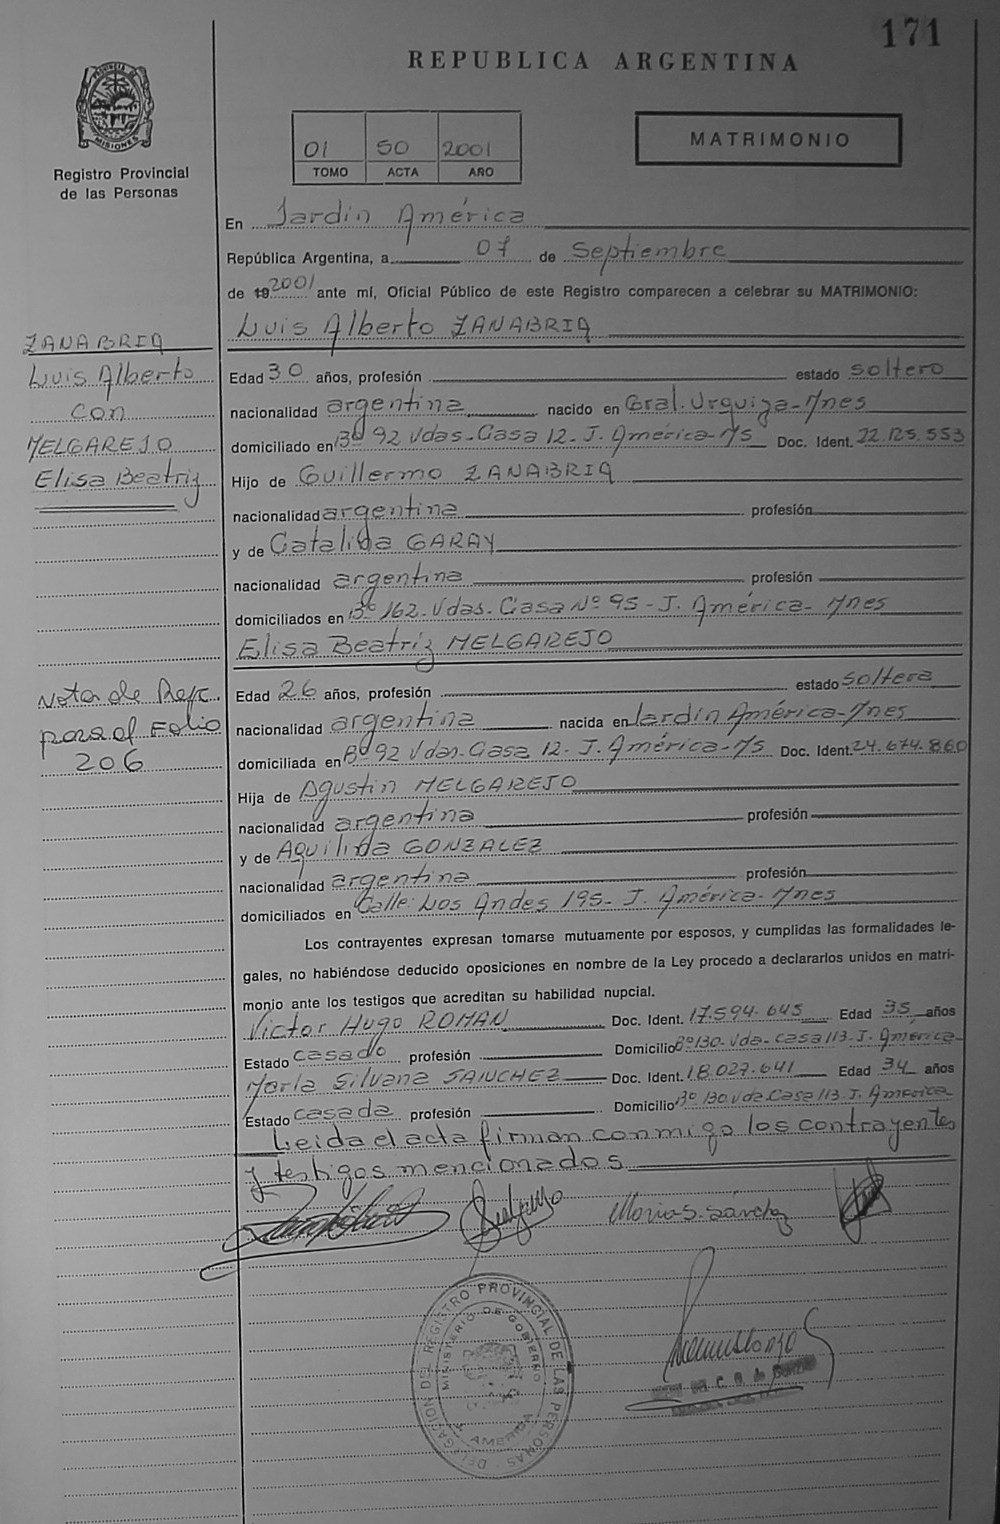 171
REPUBLICA ARGENTINA
PROVINCIA DE
MISIONES
Registro Provincial
de las Personas
01 50 2001
TOMO ACTA AÑO
MATRIMONIO
En Jardín América
República Argentina, a 07 de Septiembre
de 19 2001 ante mí, Oficial Público de este Registro comparecen a celebrar su MATRIMONIO:
Luis Alberto ZANABRIA
ZANABRIA
Luis Alberto
con
MELGAREJO
Elisa Beatriz
Edad 30 años, profesión estado soltero
nacionalidad argentina nacido en Gral. Urquiza-Mnes
domiciliado en Bº 92 Vdas-Casa 12-J. América-M/s Doc. Ident. 22.125.553
Hijo de Guillermo ZANABRIA
nacionalidad argentina profesión
y de Catalina GARAY
nacionalidad argentina profesión
domiciliados en Bº 162-Vdas-Casa Nº 95-J. América-Mnes
Elisa Beatriz MELGAREJO
Nota de Ref.
para el Folio
206
Edad 26 años, profesión estado soltera
nacionalidad argentina nacida en Jardín América-Mnes
domiciliada en Bº 92 Vdas-Casa 12-J. América-M/s Doc. Ident. 24.674.860
Hija de Agustín MELGAREJO
nacionalidad argentina profesión
y de Aquilina GONZALEZ
nacionalidad argentina profesión
domiciliados en Calle: Los Andes 195-J. América-Mnes
Los contrayentes expresan tomarse mutuamente por esposos, y cumplidas las formalidades le-
gales, no habiéndose deducido oposiciones en nombre de la Ley procedo a declararlos unidos en matri-
monio ante los testigos que acreditan su habilidad nupcial.
Victor Hugo ROMAN Doc. Ident. 17.594.645 Edad 35 años
Estado casado profesión Domicilio Bº 130-Vda-casa 113-J. América
María Silvana SANCHEZ Doc. Ident. 18.027.641 Edad 34 años
Estado casada profesión Domicilio Bº 130 Vda Casa 113-J. América
Leida el acta firman conmigo los contrayentes
y testigos mencionados
Maria S. Sánchez
DELEGACION DEL REGISTRO PROVINCIAL DE LAS PERSONAS
MINISTERIO DE GOBIERNO
J. AMERICA